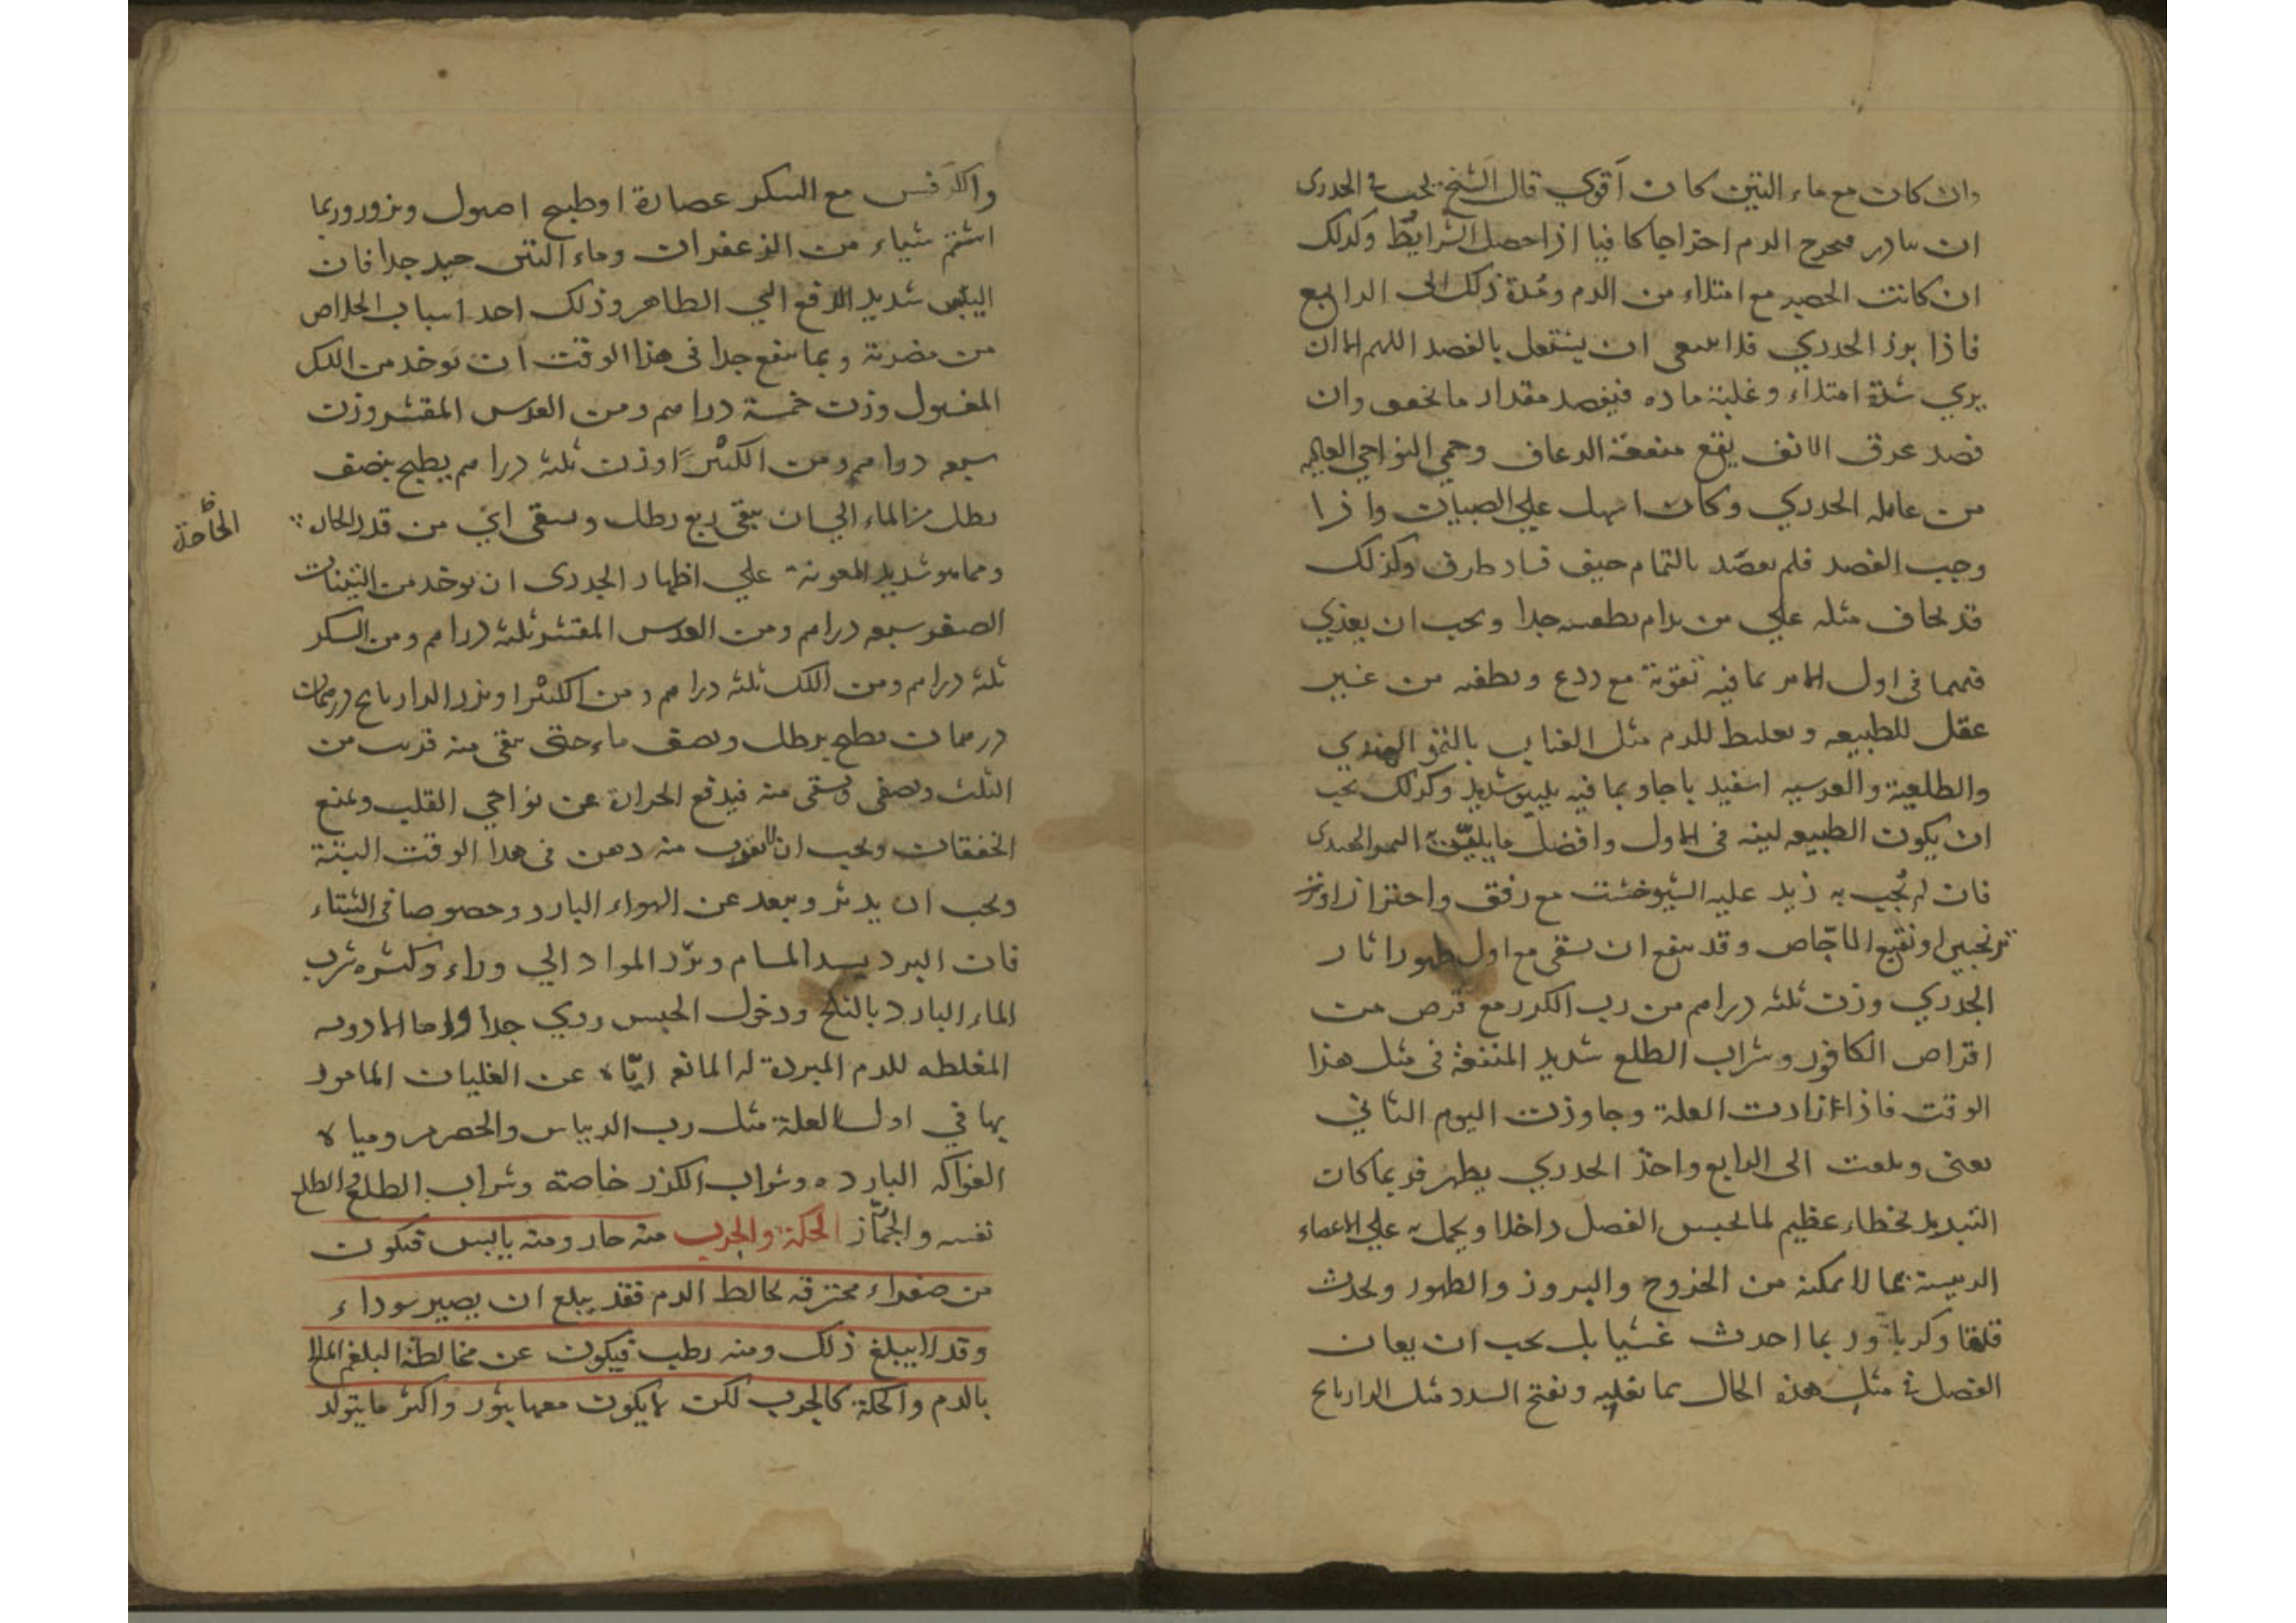 وان كان مع ماء التين كان أقوي قال الشيخ يجب في الجدري
ان يبادر فيخرج الدم اخراجا كافيا اذا حصل الشرايط وكذلك
ان كانت الحصبه مع امتلاء من الدم ومدة ذلك الى الرابع
فاذا برز الجدري فلا ينبغي ان يشتغل بالفصد اللهم الا ان
يري شدة امتلاء وغلبة ماده فيفصد مقدار ما يخفف وان
فصد عرق الانف يقع منفعة الرعاف وحمي النواحي العاليه
من غايله الجدري وكان اسهل علي الصبيان واذا
وجب الفصد فلم يفصد بالتمام خيف فساد طرف وكذلك
قد يخاف مثله علي من يدام تطفيته جدا ويجب ان يغذي
فيهما في اول الامر بما فيه تقوية مع ردع وتطفيه من غير
عقل للطبيعه وتغليظ للدم مثل العناب بالتمر الهندي
والطلعية والعدسيه اسفيد باجا وبما فيه تليين شديد وكذلك يجب
ان يكون الطبيعه لينه في الاول وافضل ما يلين به التمر الهندي
فان لم يجب به زيد عليه الشيرخشت مع رفق واحتراز او
ترنجبين او نقيع الاجاص وقد ينفع ان يسقى مع اول ظهور اثار
الجدري وزن ثلثه دراهم من رب الكدر مع قرص من
اقراص الكافور وشراب الطلع شديد المنفعة في مثل هذا
الوقت فاذا ازادت العلة وجاوزت اليوم الثاني
يعنى وبلغت الى الرابع واخذ الجدري يظهر فربما كان
التبريد لخطاء عظيم لما يحبس الفصل داخلا ويحمل به علي الاعضاء
الرييسة بما لا يمكنه من الخروج والبروز والظهور ويحدث
قلقا وكربا وربما احدث غشيا بل يجب ان يعان
الفصل في مثل هذه الحال بما يغليه ويفتح السدد مثل الرازيانج
والكرفس مع السكر عصارة او طبيخ اصول وبزور وربما
اشتم شياء من الزعفران وماء التين جيد جدا فان
التين شديد الدفع الي الظاهر وذلك احد اسباب الخلاص
من مضرته ومما ينفع جدا في هذا الوقت ان يوخذ من اللك
المغسول وزن خمسة دراهم ومن العدس المقشر وزن
سبعه دراهم ومن الكثيرا وزن ثلثه دراهم يطبخ بنصف
رطل من الماء الي ان يبقي ربع رطل ويسقى
الحاجة
ومما هو شديد المعونة علي اظهار الجدري ان يوخذ من التينات
الصفر سبعه دراهم ومن العدس المقشر ثلثه دراهم ومن السكر
ثلثه دراهم ومن اللك ثلثه دراهم ومن الكثيرا وبزر الرازيانج درهمان
درهمان يطبخ برطل ونصف ماء حتى يبقى منه قريب من
الثلث ويصفى ويسقى منه فيدفع الحرارة عن نواحي القلب ويمنع
الخفقان ويجب ان لا يقرب منه دهن في هذا الوقت البتة
ويجب ان يدثر ويبعد عن الهواء البارد وخصوصا في الشتاء
فان البرد يسد المسام ويرد المواد الي وراء وكثره شرب
الماء البارد بالثلج ودخول الخيس ردي جدا واما الادويه
المغلظه للدم المبردة له المانعه اياه عن الغليان المامور
بها في اول العلة مثل رب الريباس والحصرم ومياه
الفواكه البارده وشراب الكدر خاصة وشراب الطلع والطلع
نفسه والجمار الحكة والجرب منه حار ومنه يابس فيكون
من صفراء محترقه يخالط الدم فقد يبلغ ان يصير سوداء
وقد لا يبلغ ذلك ومنه رطب فيكون عن مخالطة البلغم المالح
بالدم والحكة كالجرب لكن لا يكون معها بثور واكثر ما يتولد